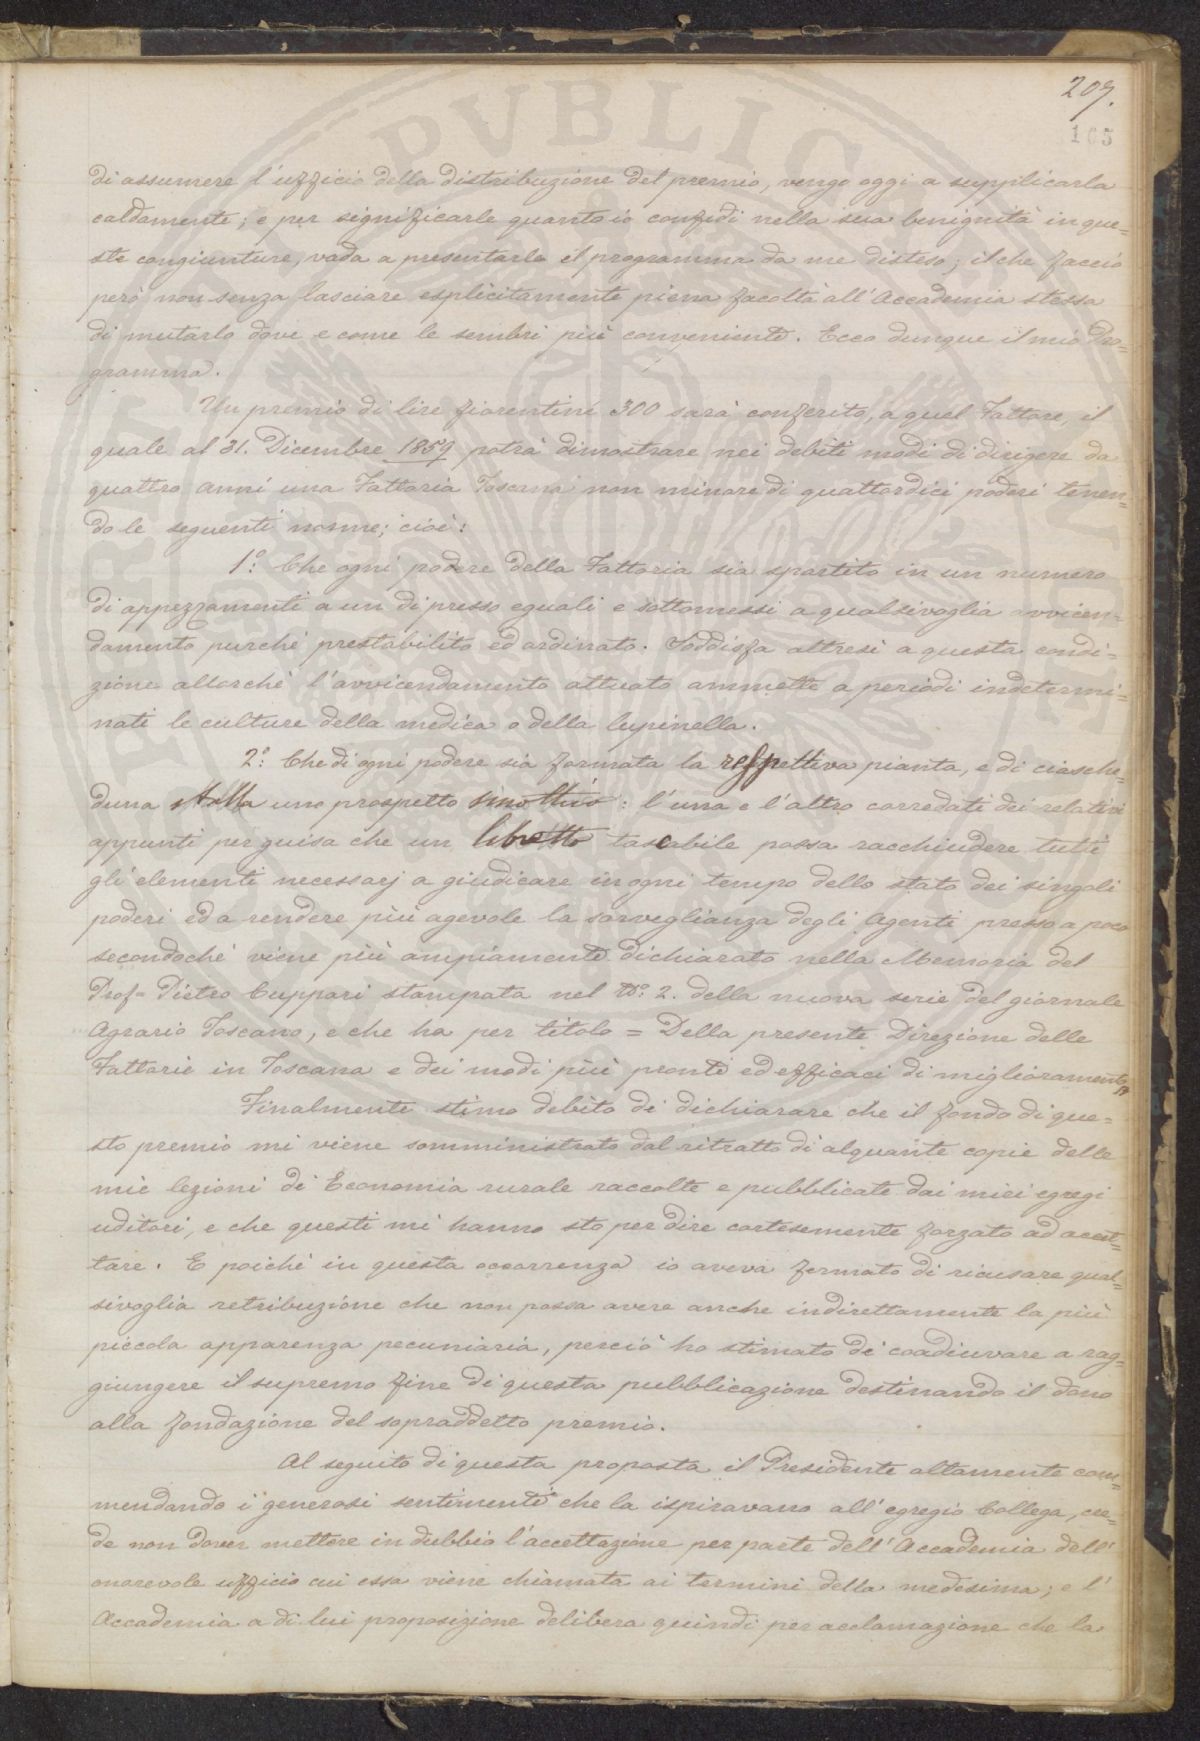 207.
165
di assumere l'uffizio della distribuzione del premio, vengo oggi a supplicarla
caldamente; e per significarle quanto io confidi nella sua benignità in que=
ste congiunture, vada a presentarle il programma da me disteso; il che faccio
però non senza lasciare esplicitamente piena facoltà all'Accademia stessa
di mutarlo dove e come le sembri più conveniente. Ecco dunque il mio Pro=
gramma.
Un premio di lire fiorentine 300 sarà conferito, a quel Fattore, il
quale al 31. Dicembre 1859 potrà dimostrare nei debiti modi di dirigere da
quattro anni una Fattoria Toscana non minore di quattordici poderi tenen=
do le seguenti norme; cioè:
1.° Che ogni podere della Fattoria sia spartito in un numero
di appezzamenti a un di presso eguali e sottomessi a qualsivoglia avvicen=
damento purchè prestabilito ed ordinato. Soddisfa altresì a questa condi=
zione allorchè l'avvicendamento attuato ammette a periodi indetermi=
nati le culture della medica o della lupinella.
2.° Che di ogni podere sia formata la respettiva pianta, e di ciasche=
duna stalla uno prospetto sinottico: l'una e l'altro corredati dei relativi
appunti per guisa che un libretto tascabile possa racchiudere tutti
gli elementi necessarj a giudicare in ogni tempo dello stato dei singoli
poderi ed a rendere più agevole la sorveglianza degli Agenti presso a poco
secondochè viene più ampiamente dichiarato nella Memoria del
Prof= Pietro Cuppari stampata nel N.° 2. della nuova serie del giornale
Agrario Toscano, e che ha per titolo = Della presente Direzione delle
Fattorie in Toscana e dei modi più pronti ed efficaci di miglioramento
Finalmente stimo debito di dichiarare che il fondo di que=
sto premio mi viene somministrato dal ritratto di alquante copie delle
mie lezioni di Economia rurale raccolte e pubblicate dai miei egregi
uditori, e che questi mi hanno sto per dire cortesemente forzato ad accet=
tare. E poichè in questa occorrenza io aveva fermato di ricusare qual=
sivoglia retribuzione che non possa avere anche indirettamente la più
piccola apparenza pecuniaria, perciò ho stimato di coadiuvare a rag=
giungere il supremo fine di questa pubblicazione destinando il dono
alla fondazione del sopraddetto premio.
Al seguito di questa proposta il Presidente altamente com=
mendando i generosi sentimenti che la ispiravano all'egregio Collega, cre=
de non dover mettere in dubbio l'accettazione per parte dell'Accademia dell'
onorevole uffizio cui essa viene chiamata ai termini della medesima; e l'
Accademia a di lui proposizione delibera quindi per acclamazione che la